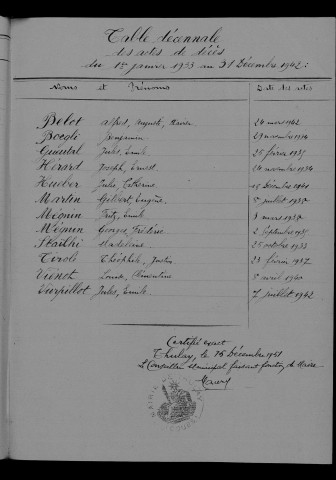 Table décennale
des actes de décès
du 1er janvier 1933 au 31 Décembre 1942 :
Noms et Prénoms Date des actes
Belot Alfred, Auguste, Xavier 24 mars 1942
Benjamin 29 novembre 1934
Jules, Emile 25 février 1935
Hérard Joseph, Ernest 24 novembre 1934
Hueber Julie, Catherine 15 Décembre 1941
Martin Gilbert Eugène 5 juillet
Mégnin Fritz, Emile 3 mars
Mégnin Georges, Frédéric 2 Septembre 1935
Madeleine 25 octobre 1933
Tirole Théophile, Justin 23 février 1937
Viénot Louise, Clémentine 5 avril 1940
Vurpillot Jules, Emile 7 juillet 1942
Certifié exact
Thulay, le 16 Décembre 1951
Le Conseiller Municipal faisant fonction de Maire
MAIRIE